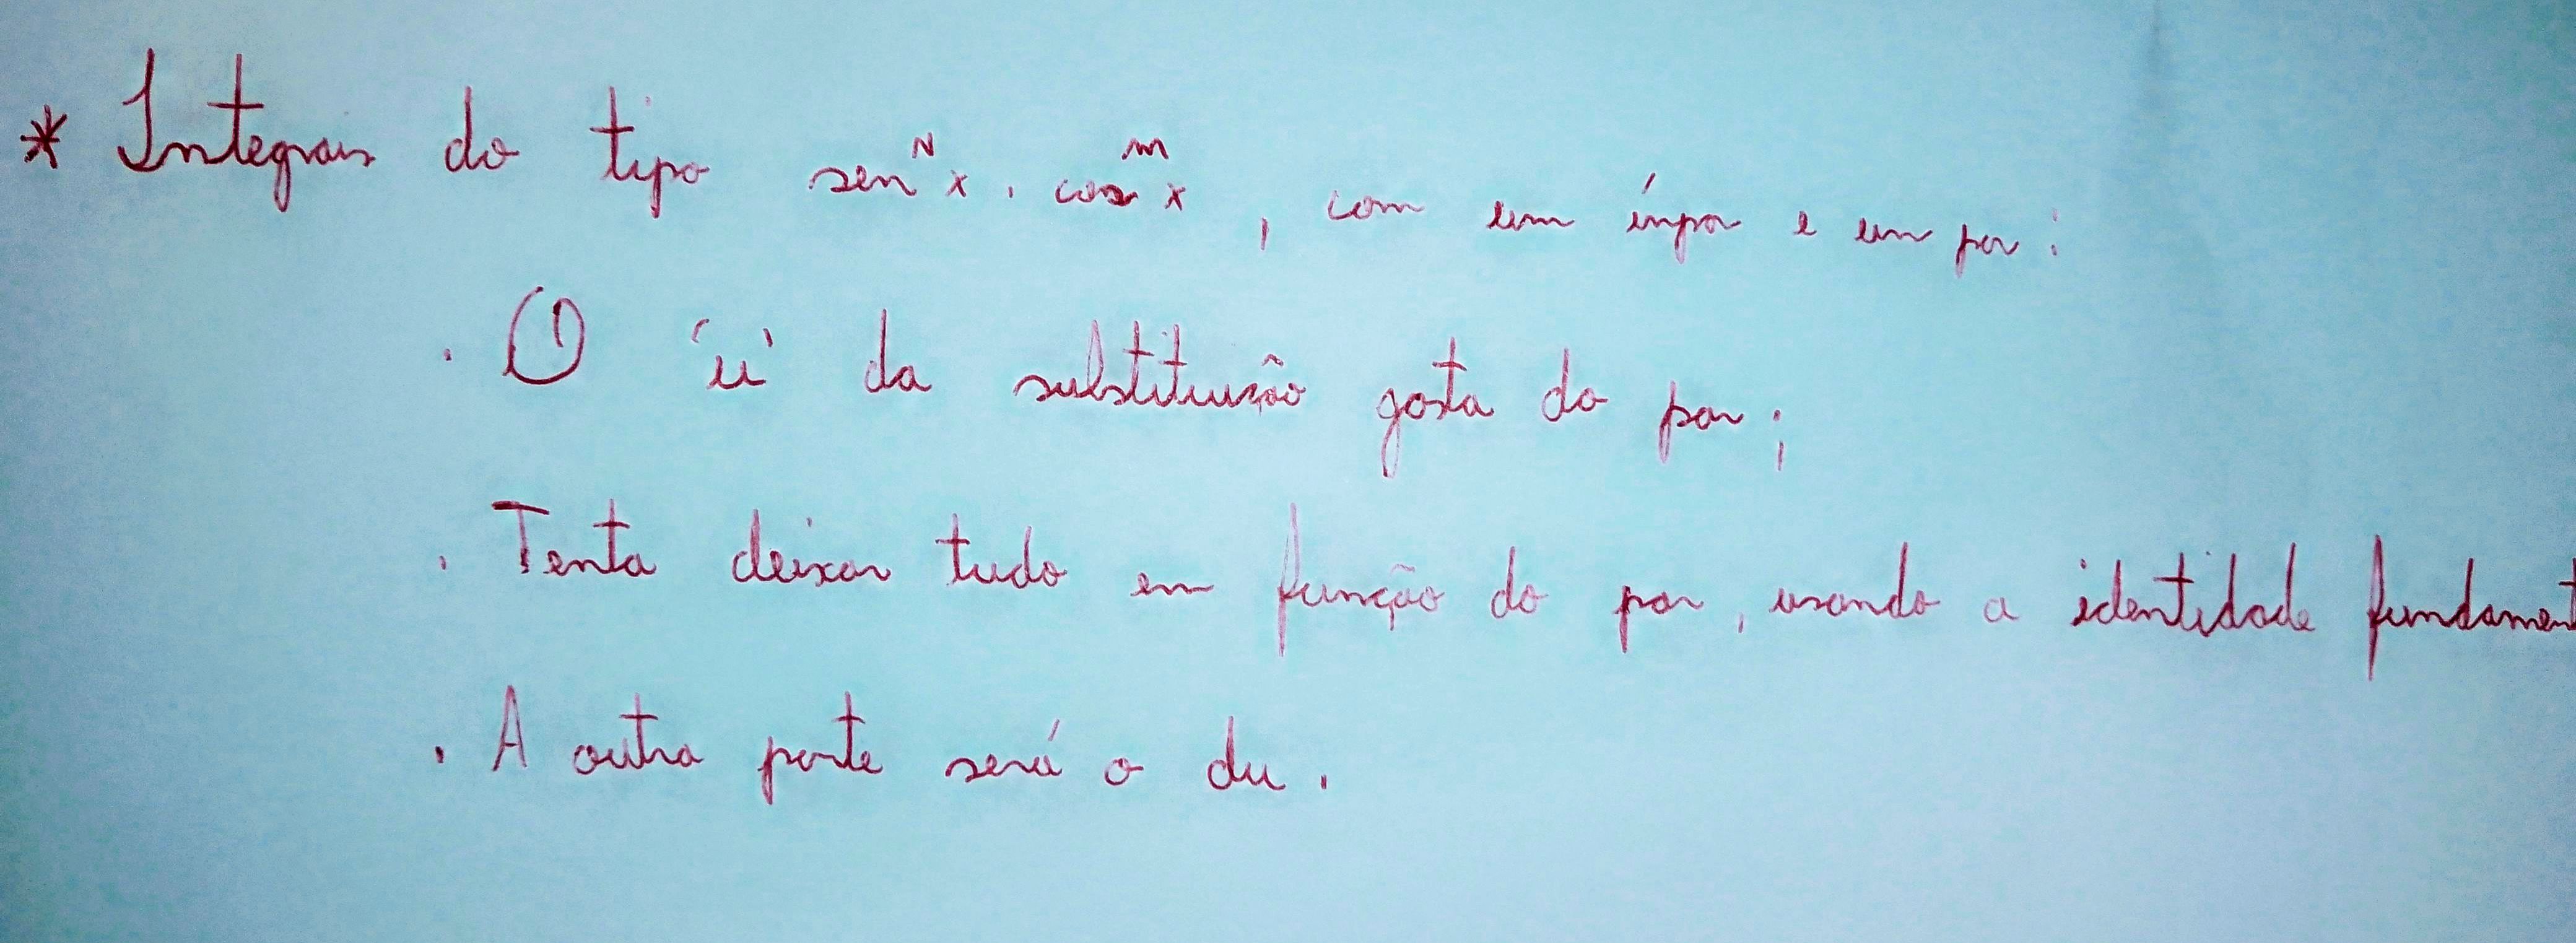 * Integrais do tipo senᴺx . cosᵐx , com um ímpar e um par :
. O 'u' da substituição gosta do par ;
. Tenta deixar tudo em função do par, usando a identidade fundament
. A outra parte será o du .